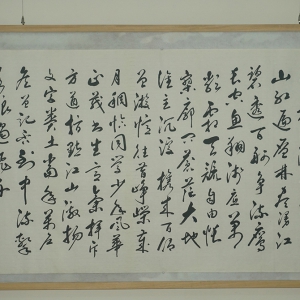 山红遍层林尽染漫江
碧透百舸争流鹰
击长空鱼翔浅底万
类霜天竞自由怅
寥廓问苍茫大地
谁主沉浮携来百侣
曾游忆往昔峥嵘岁
月稠恰同学少年风华
正茂书生意气挥斥
方遒指点江山激扬
文字粪土当年万户
侯曾记否到中流击
水浪遏飞舟